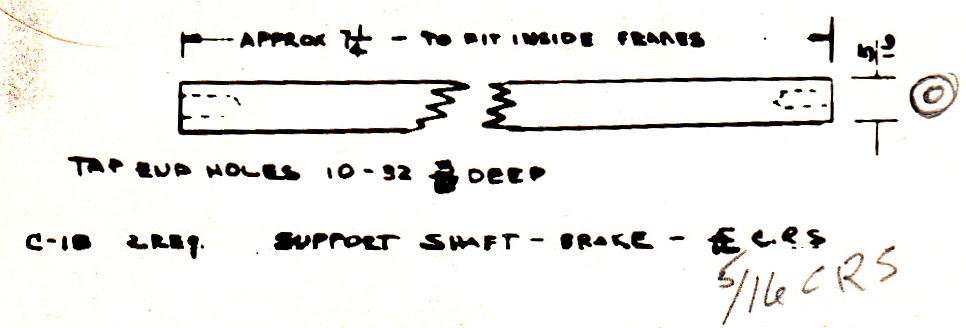 APPROX 7 1/4 - TO FIT INSIDE FRAMES
5/16
TAP END HOLES 10-32 DEEP
C-18 2 REQ. SUPPORT SHAFT - BRAKE - C.R.S
5/16 CRS